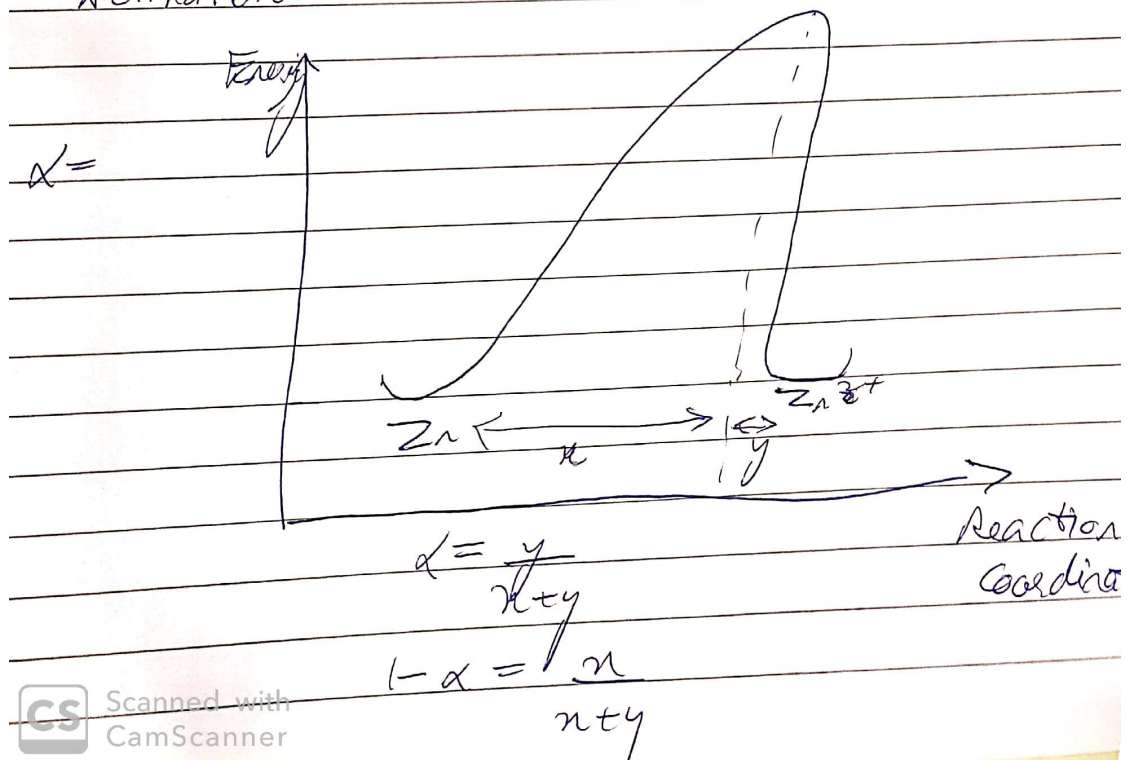 Energy
α =
Zn
x
y
Zn 2+
Reaction
Coordina
α = y / x+y
1-α = x / x+y
CS Scanned with
CamScanner